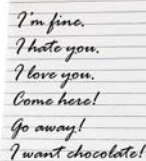 I'm fine.
I hate you.
I love you.
Come here!
Go away!
I want chocolate!